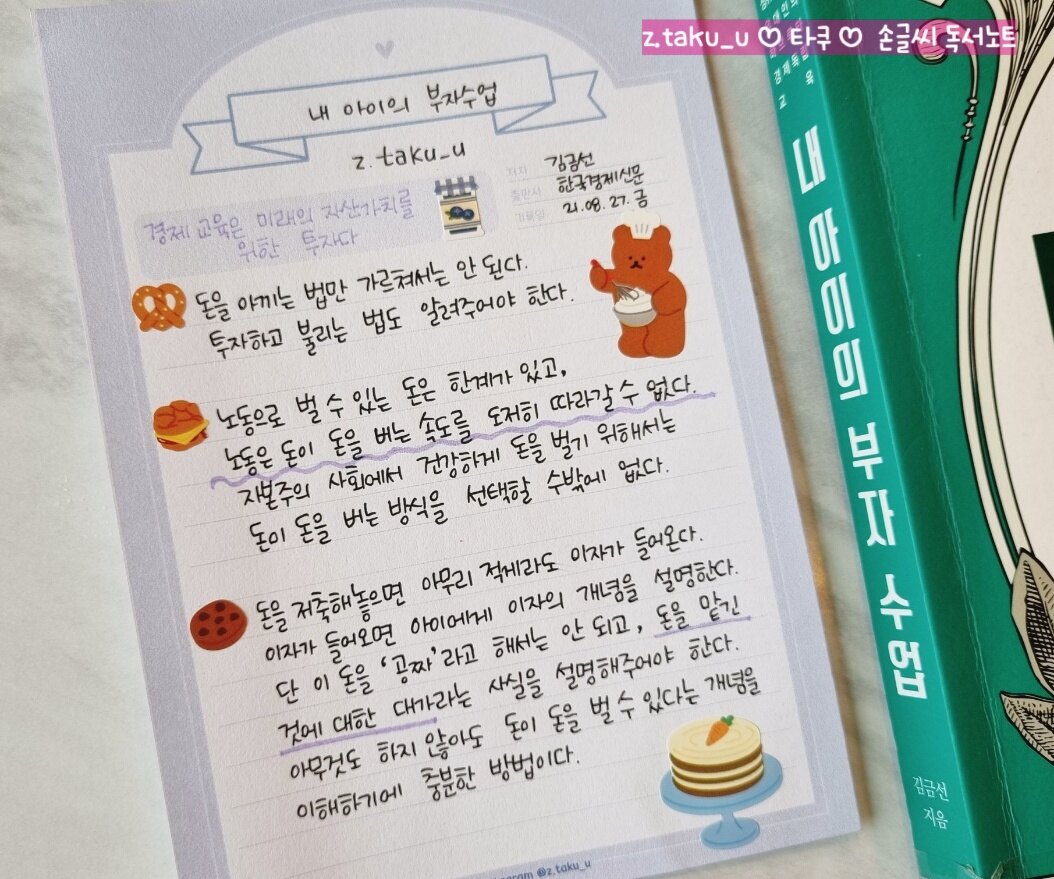 z.taku_u ♡ 타쿠 ♡ 손글씨 독서노트
내 아이의 부자수업
z.taku_u
저자 김금선
출판사 한국경제신문
기록일 21.08.27.금
경제 교육은 미래의 자산가치를
위한 투자다
돈을 아끼는 법만 가르쳐서는 안 된다.
투자하고 불리는 법도 알려주어야 한다.
노동으로 벌 수 있는 돈은 한계가 있고,
노동은 돈이 돈을 버는 속도를 도저히 따라갈 수 없다.
자본주의 사회에서 건강하게 돈을 벌기 위해서는
돈이 돈을 버는 방식을 선택할 수밖에 없다.
돈을 저축해놓으면 아무리 적게라도 이자가 들어온다.
이자가 들어오면 아이에게 이자의 개념을 설명한다.
단 이 돈을 '공짜'라고 해서는 안 되고, 돈을 맡긴
것에 대한 대가라는 사실을 설명해주어야 한다.
아무것도 하지 않아도 돈이 돈을 벌 수 있다는 개념을
이해하기에 충분한 방법이다.
@z.taku_u
내 아이의 부자 수업
김금선
지음